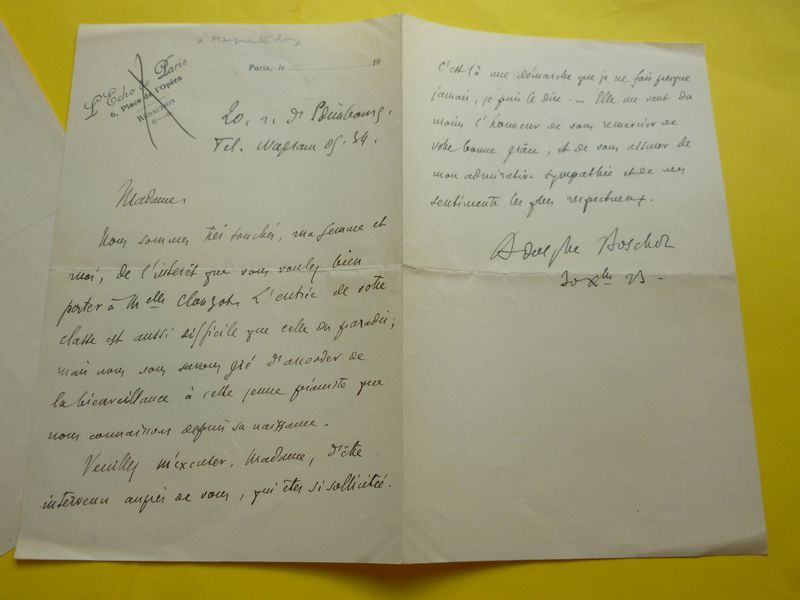 à Marguerite Long
L'Echo de Paris
6, Place de l'Opéra
RÉDACTION
Paris, le 19
20, r. d'Edimbourg.
Tel. Wagram 05.34.
Madame,
Nous sommes très touchés, ma femme et
moi, de l'intérêt que vous voulez bien
porter à Melle Clouzot. L'entrée de votre
classe est aussi difficile que celle du paradis ;
mais nous vous savons gré d'accorder de
la bienveillance à cette jeune pianiste que
nous connaissons depuis sa naissance.
Veuillez m'excuser, Madame, d'être
intervenu auprès de vous, qui êtes si sollicitée.
C'est là une démarche que je ne fais presque
jamais, je puis le dire. - Elle me vaut du
moins l'honneur de vous remercier de
votre bonne grâce, et de vous assurer de
mon admiration sympathie et de mes
sentiments les plus respectueux.
Adolphe Boschot
Xbre